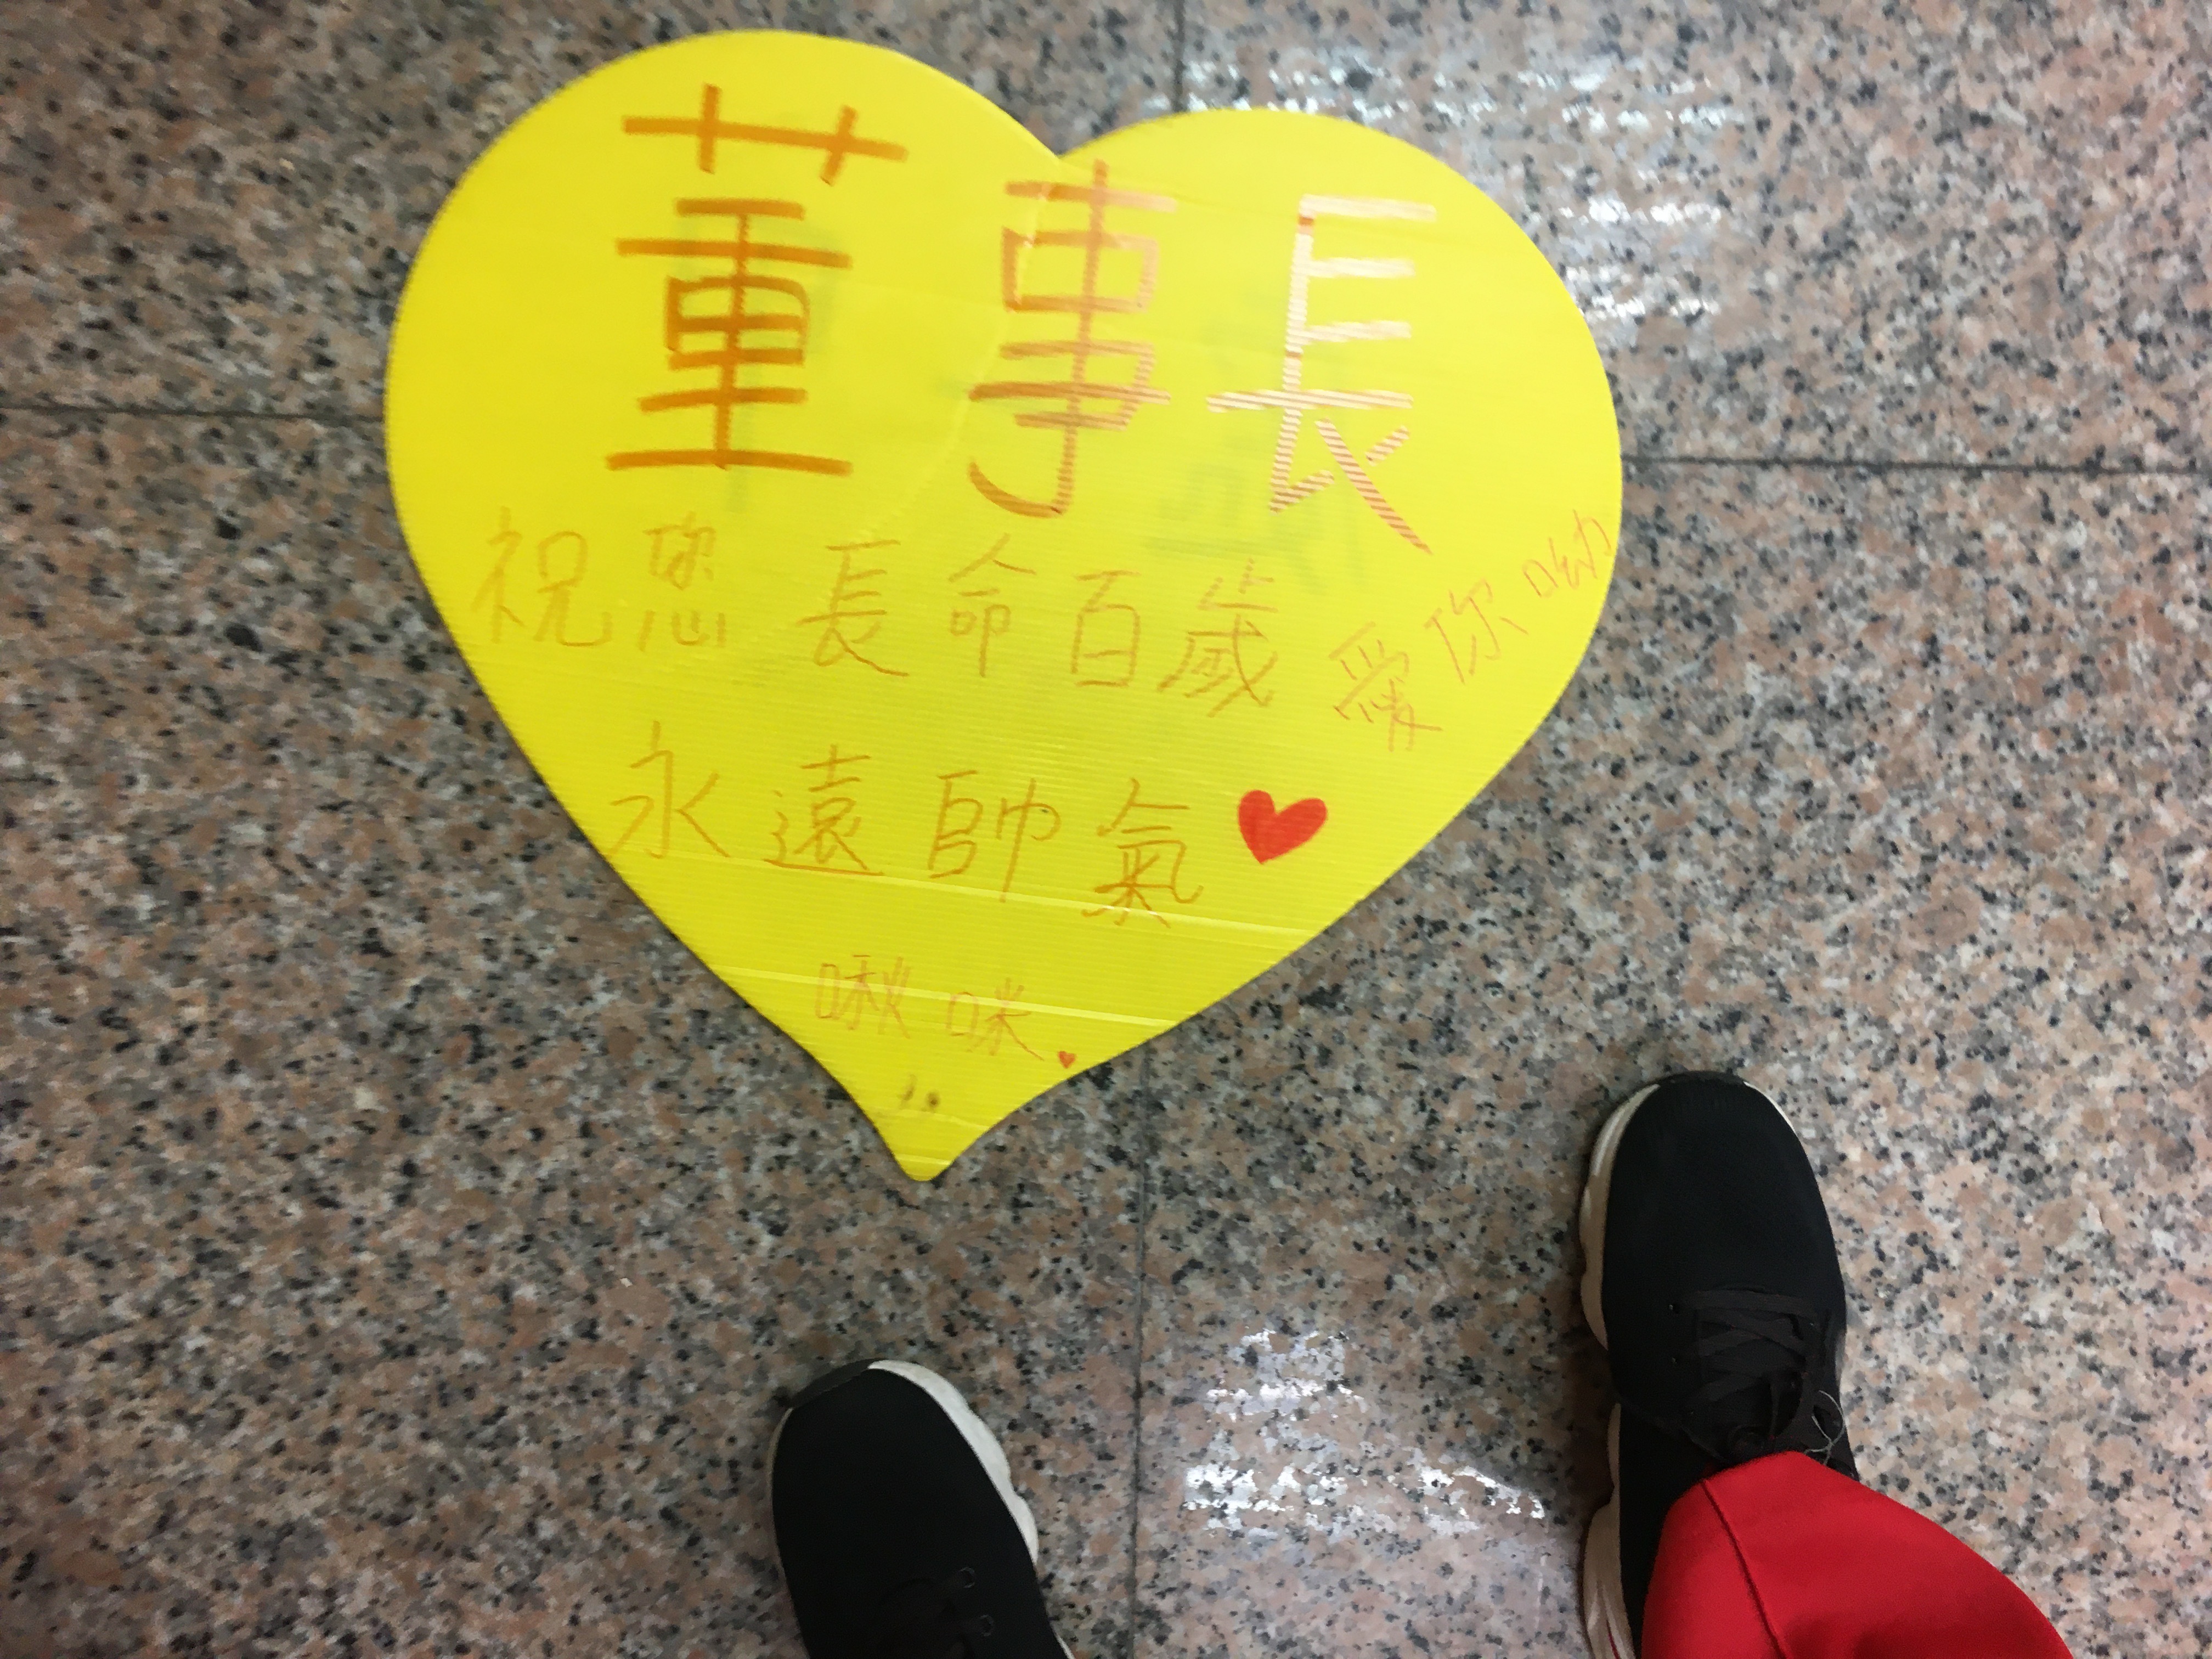 董事長
祝您長命百歲 愛你呦
永遠帥氣
啾咪